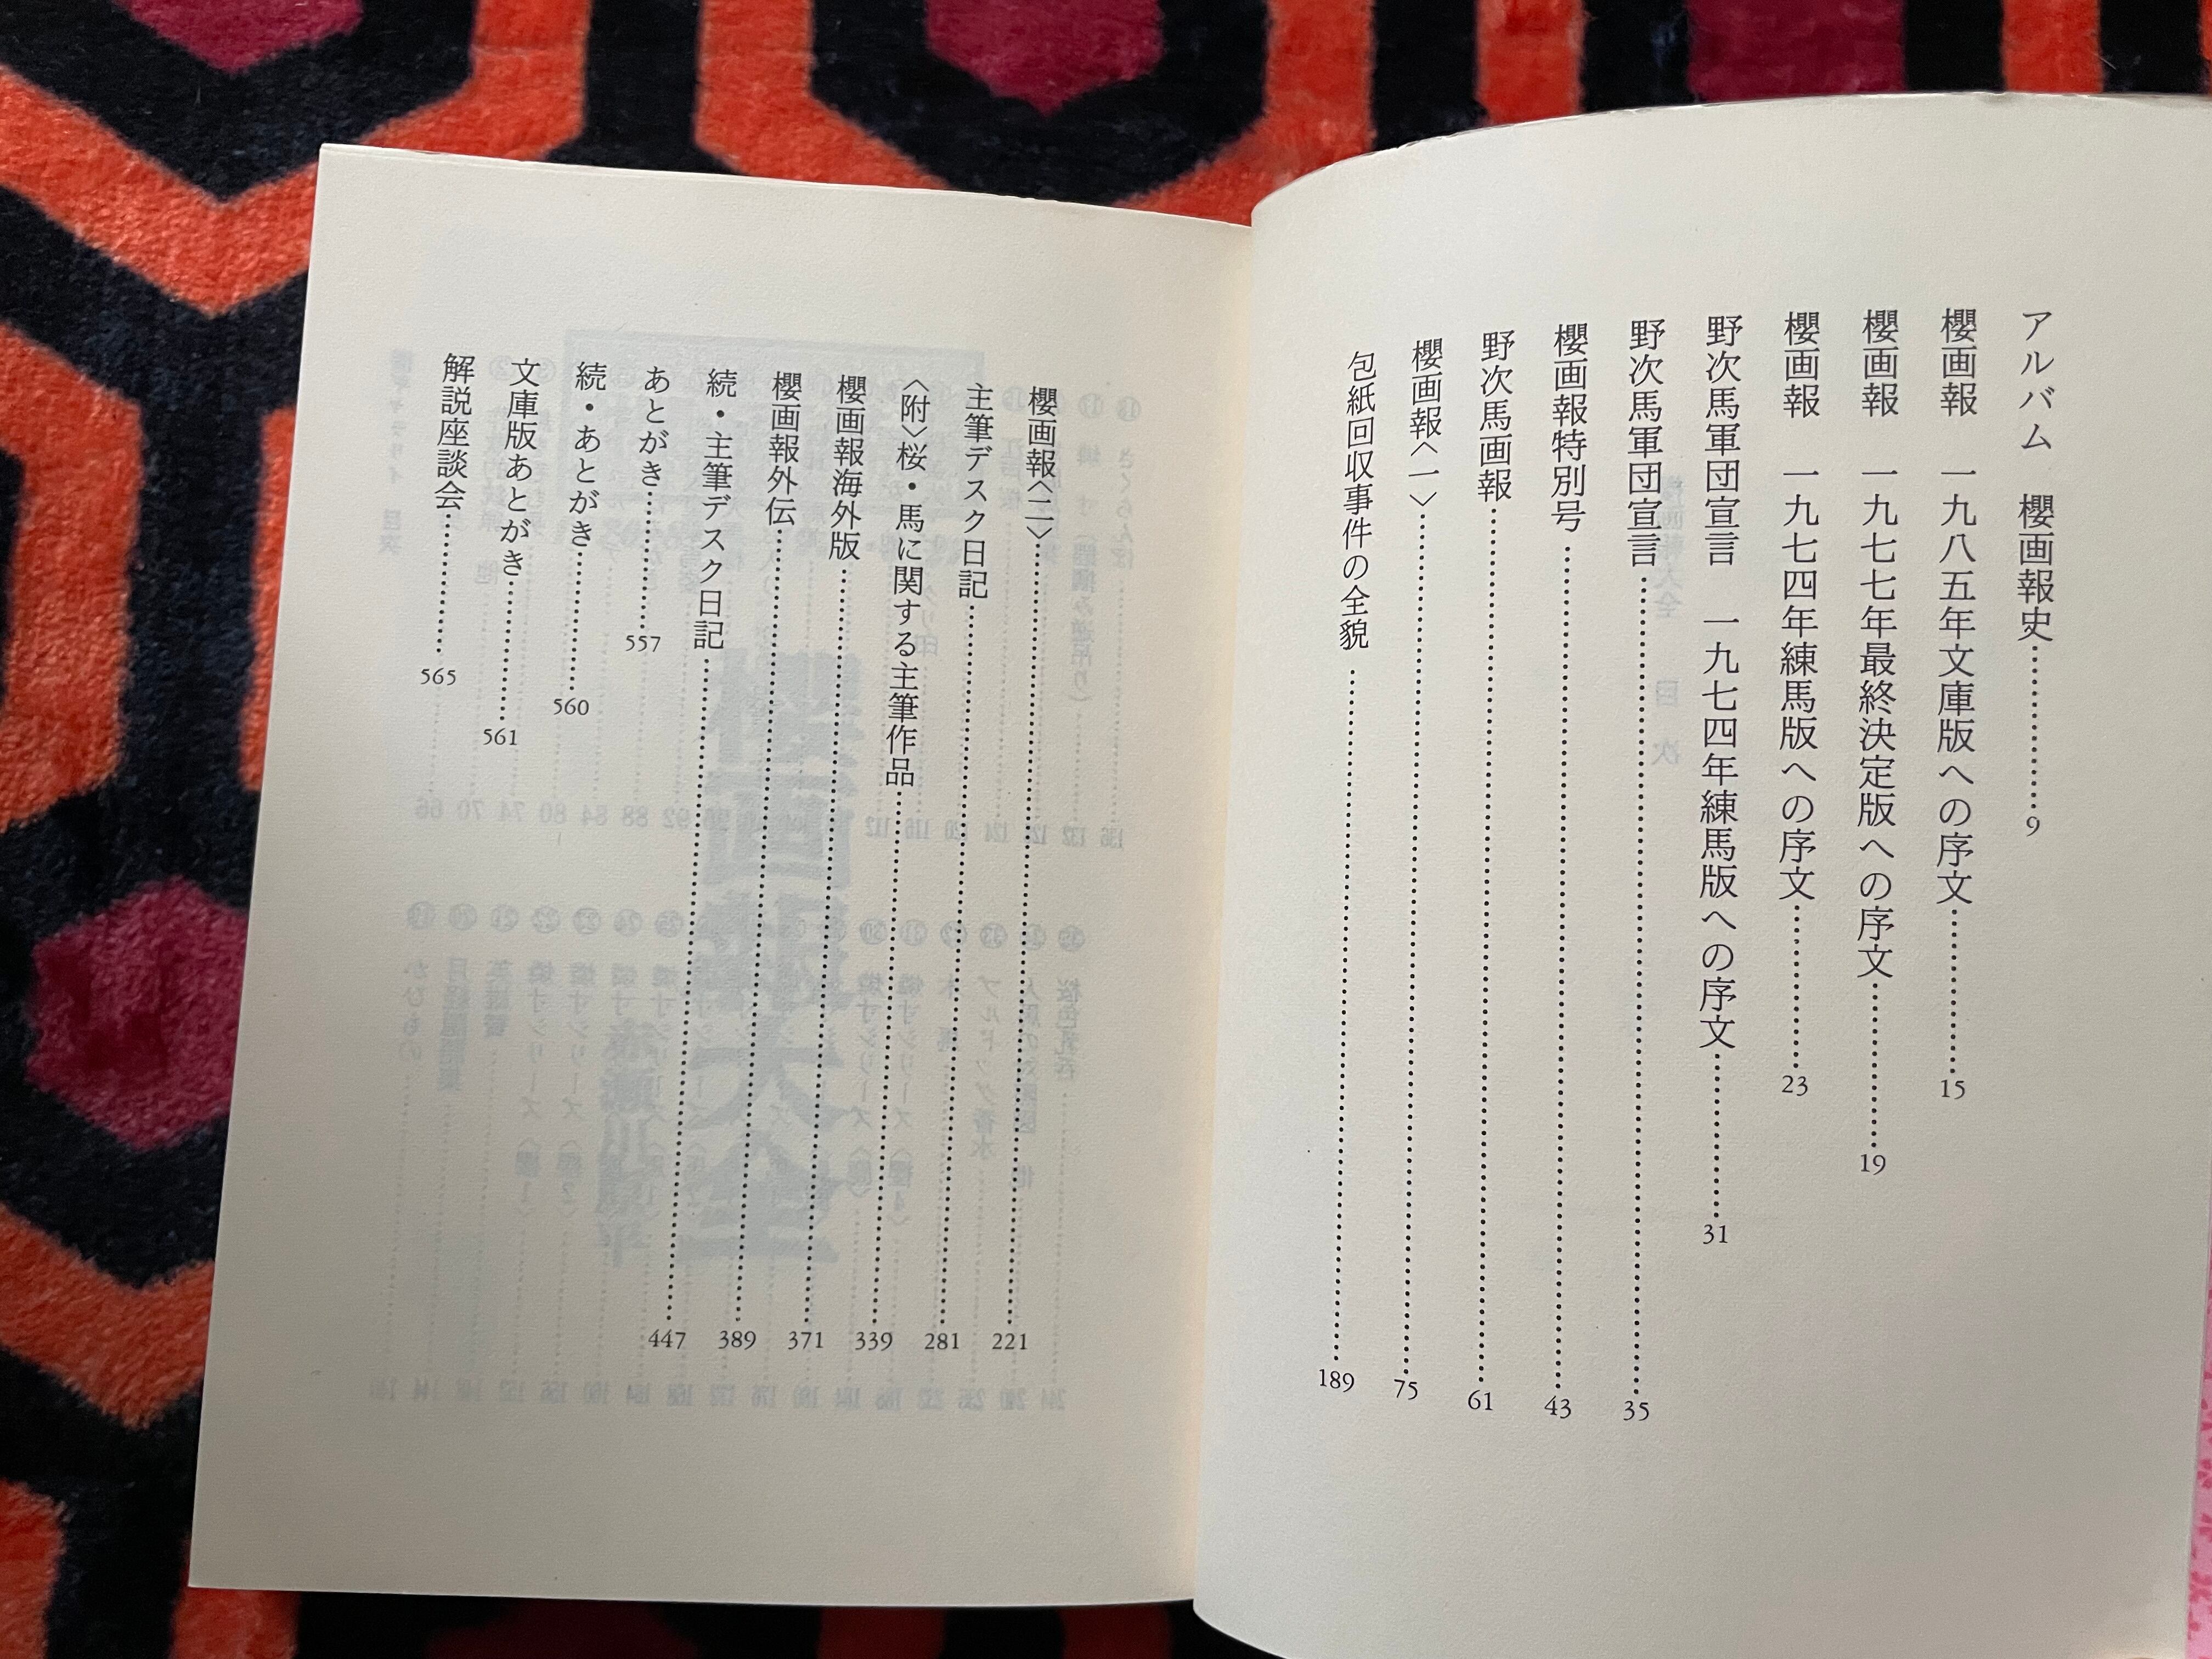 アルバム　櫻画報史…………9
櫻画報　一九八五年文庫版への序文…………15
櫻画報　一九七七年最終決定版への序文…………19
櫻画報　一九七四年練馬版への序文…………23
野次馬軍団宣言　一九七四年練馬版への序文…………31
野次馬軍団宣言…………35
櫻画報特別号…………43
野次馬画報…………61
櫻画報〈一〉…………75
包紙回収事件の全貌…………189
櫻画報〈二〉…………221
主筆デスク日記…………281
〈附〉桜・馬に関する主筆作品…………339
櫻画報海外版…………371
櫻画報外伝…………389
続・主筆デスク日記…………447
あとがき…………557
続・あとがき…………560
文庫版あとがき…………561
解説座談会…………565